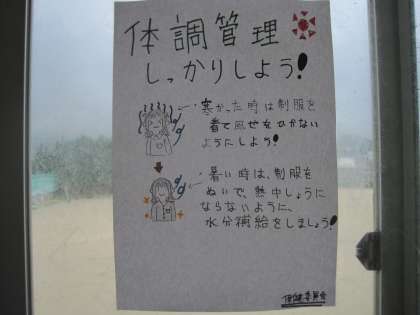 体調管理
しっかりしよう!
寒かった時は制服を
着て風せをひかない
ようにしよう!
暑い時は、制服を
ぬいで、熱中しょうに
ならないように、
水分補給をしましょう!
保健委員会